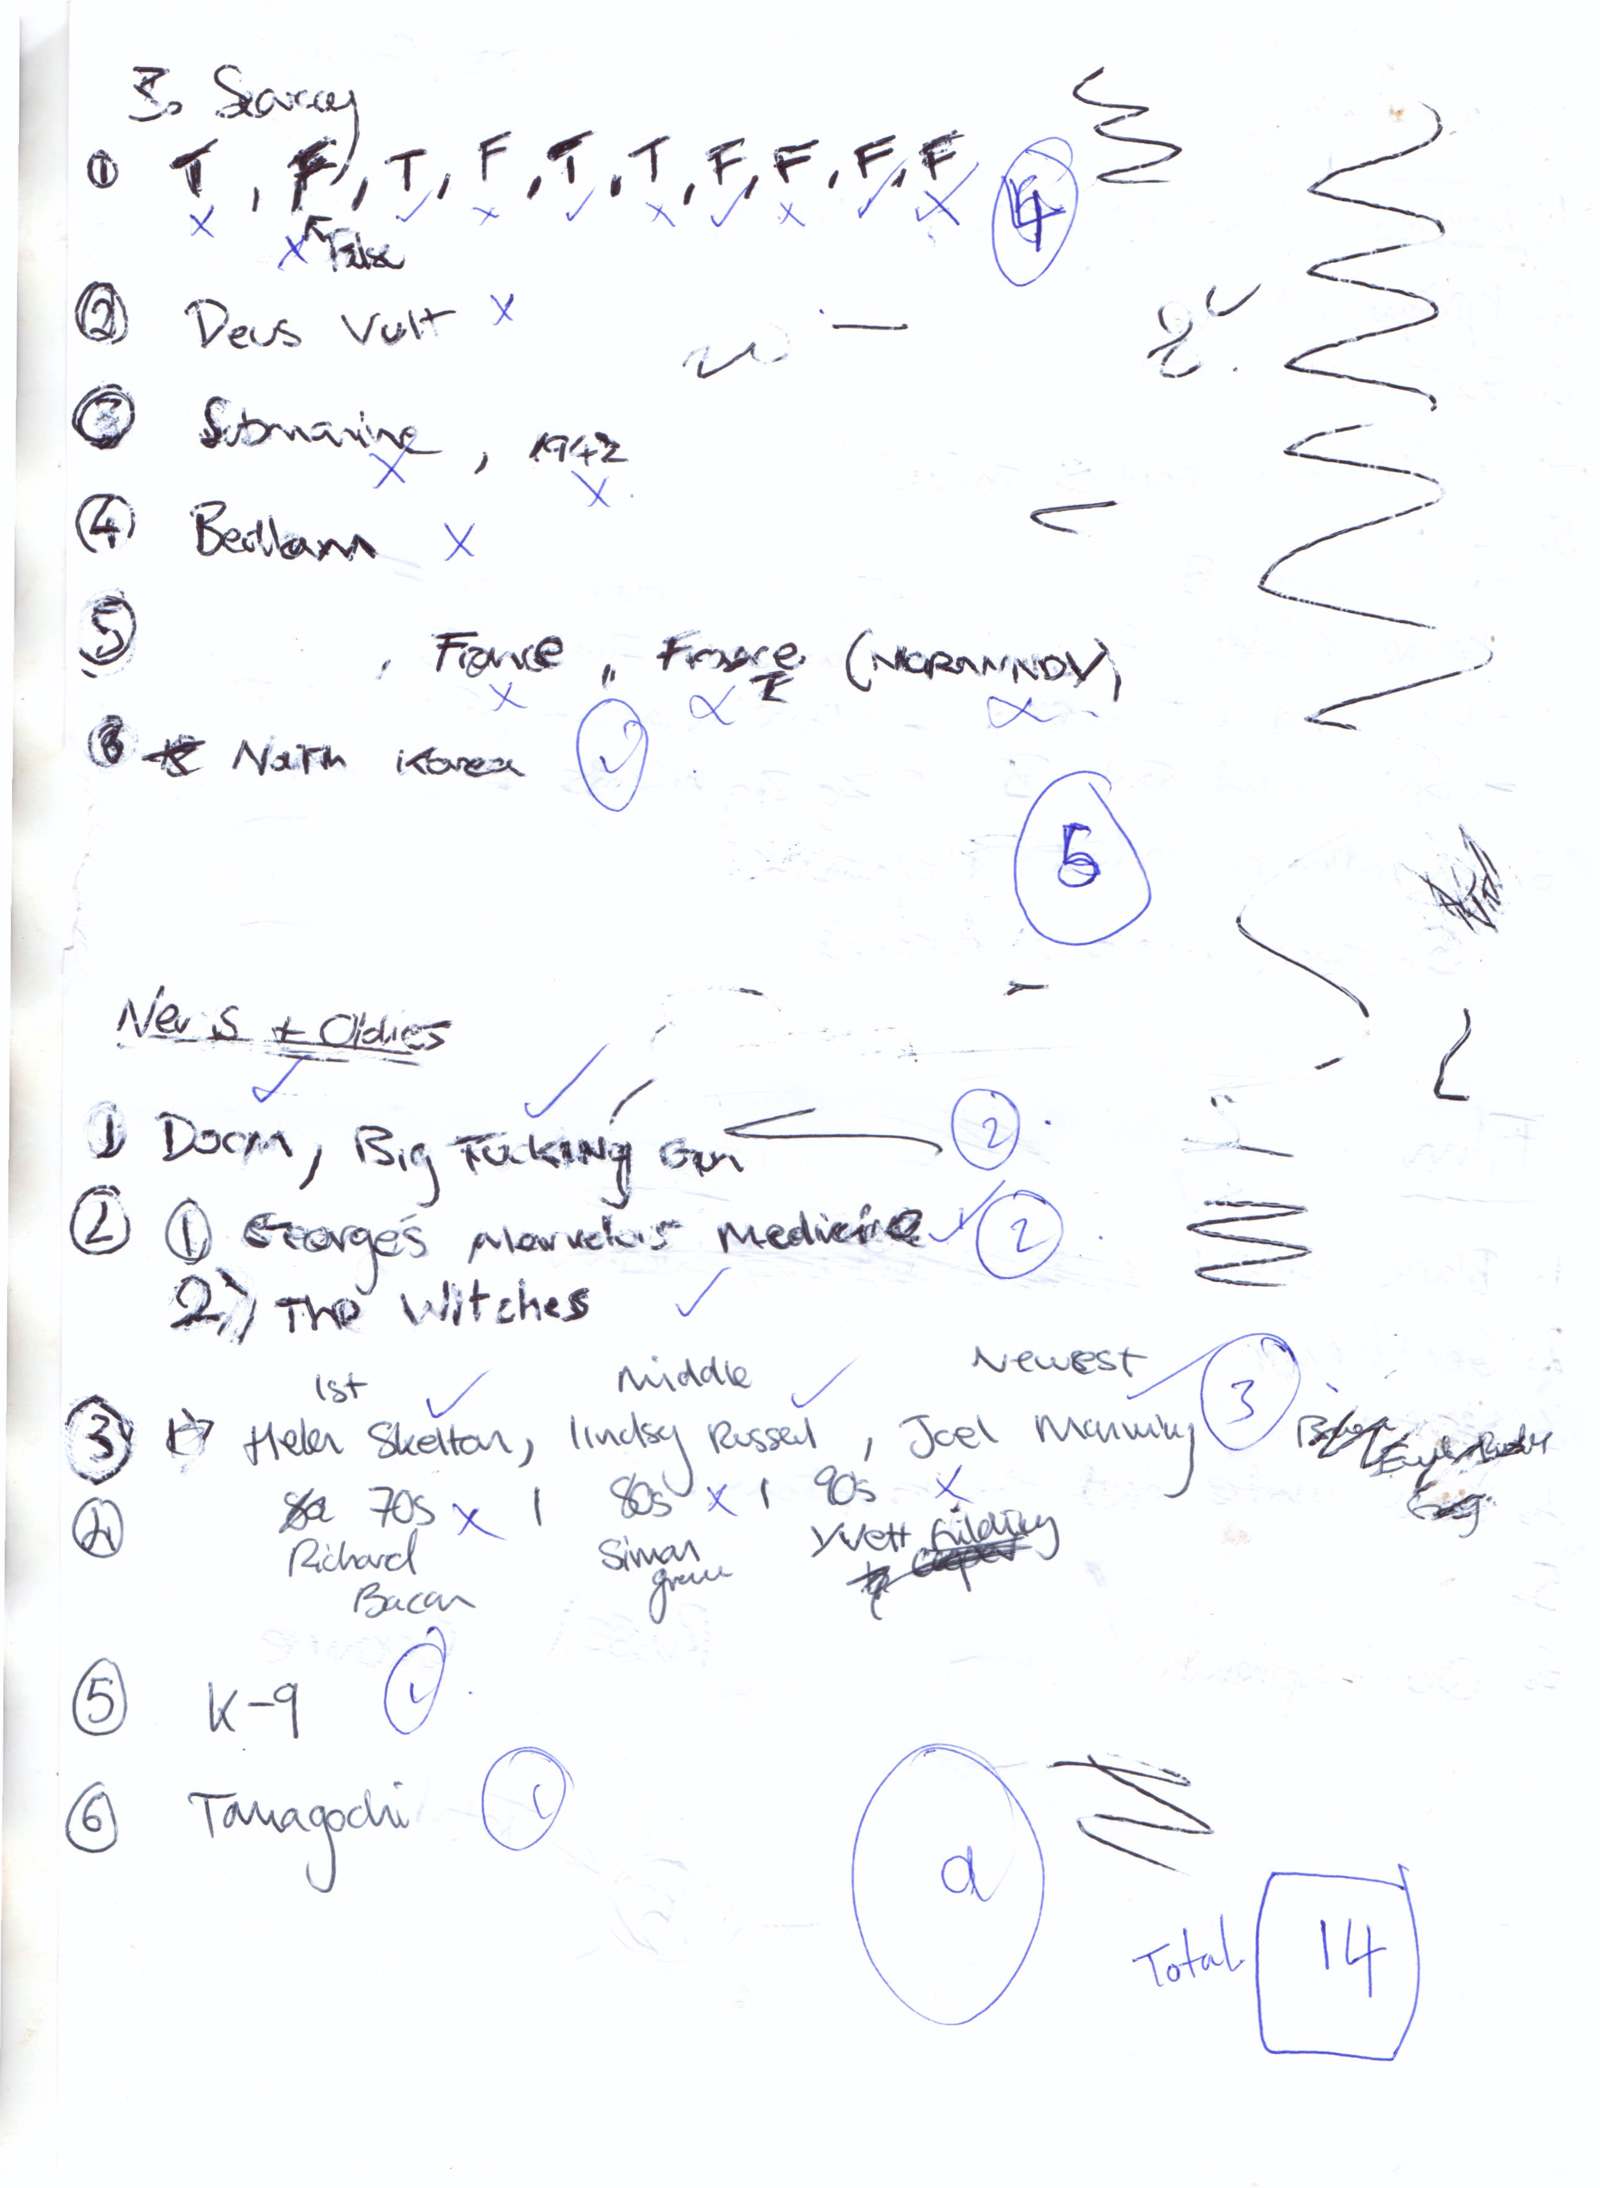 3. Scarcey
① T, F, T, F, T, T, F, F, F, F 4
False
② Deus Vult
③ Submarine, 1942
④ Bedlam
⑤ , France, France (NORMANDY)
⑥ North Korea
5
New s + Oldies
① Doom, Big Fucking Gun 2
② ① George's Marvelous Medicine 2
2) The Witches
1st Middle Newest
③ Helen Skelton, lindsy Russell, Joel Manning 3
④ 70s | 80s | 90s
Richard Simon Yvett Fielding
Bacon
⑤ K-9
⑥ Tamagochi
9
Total 14